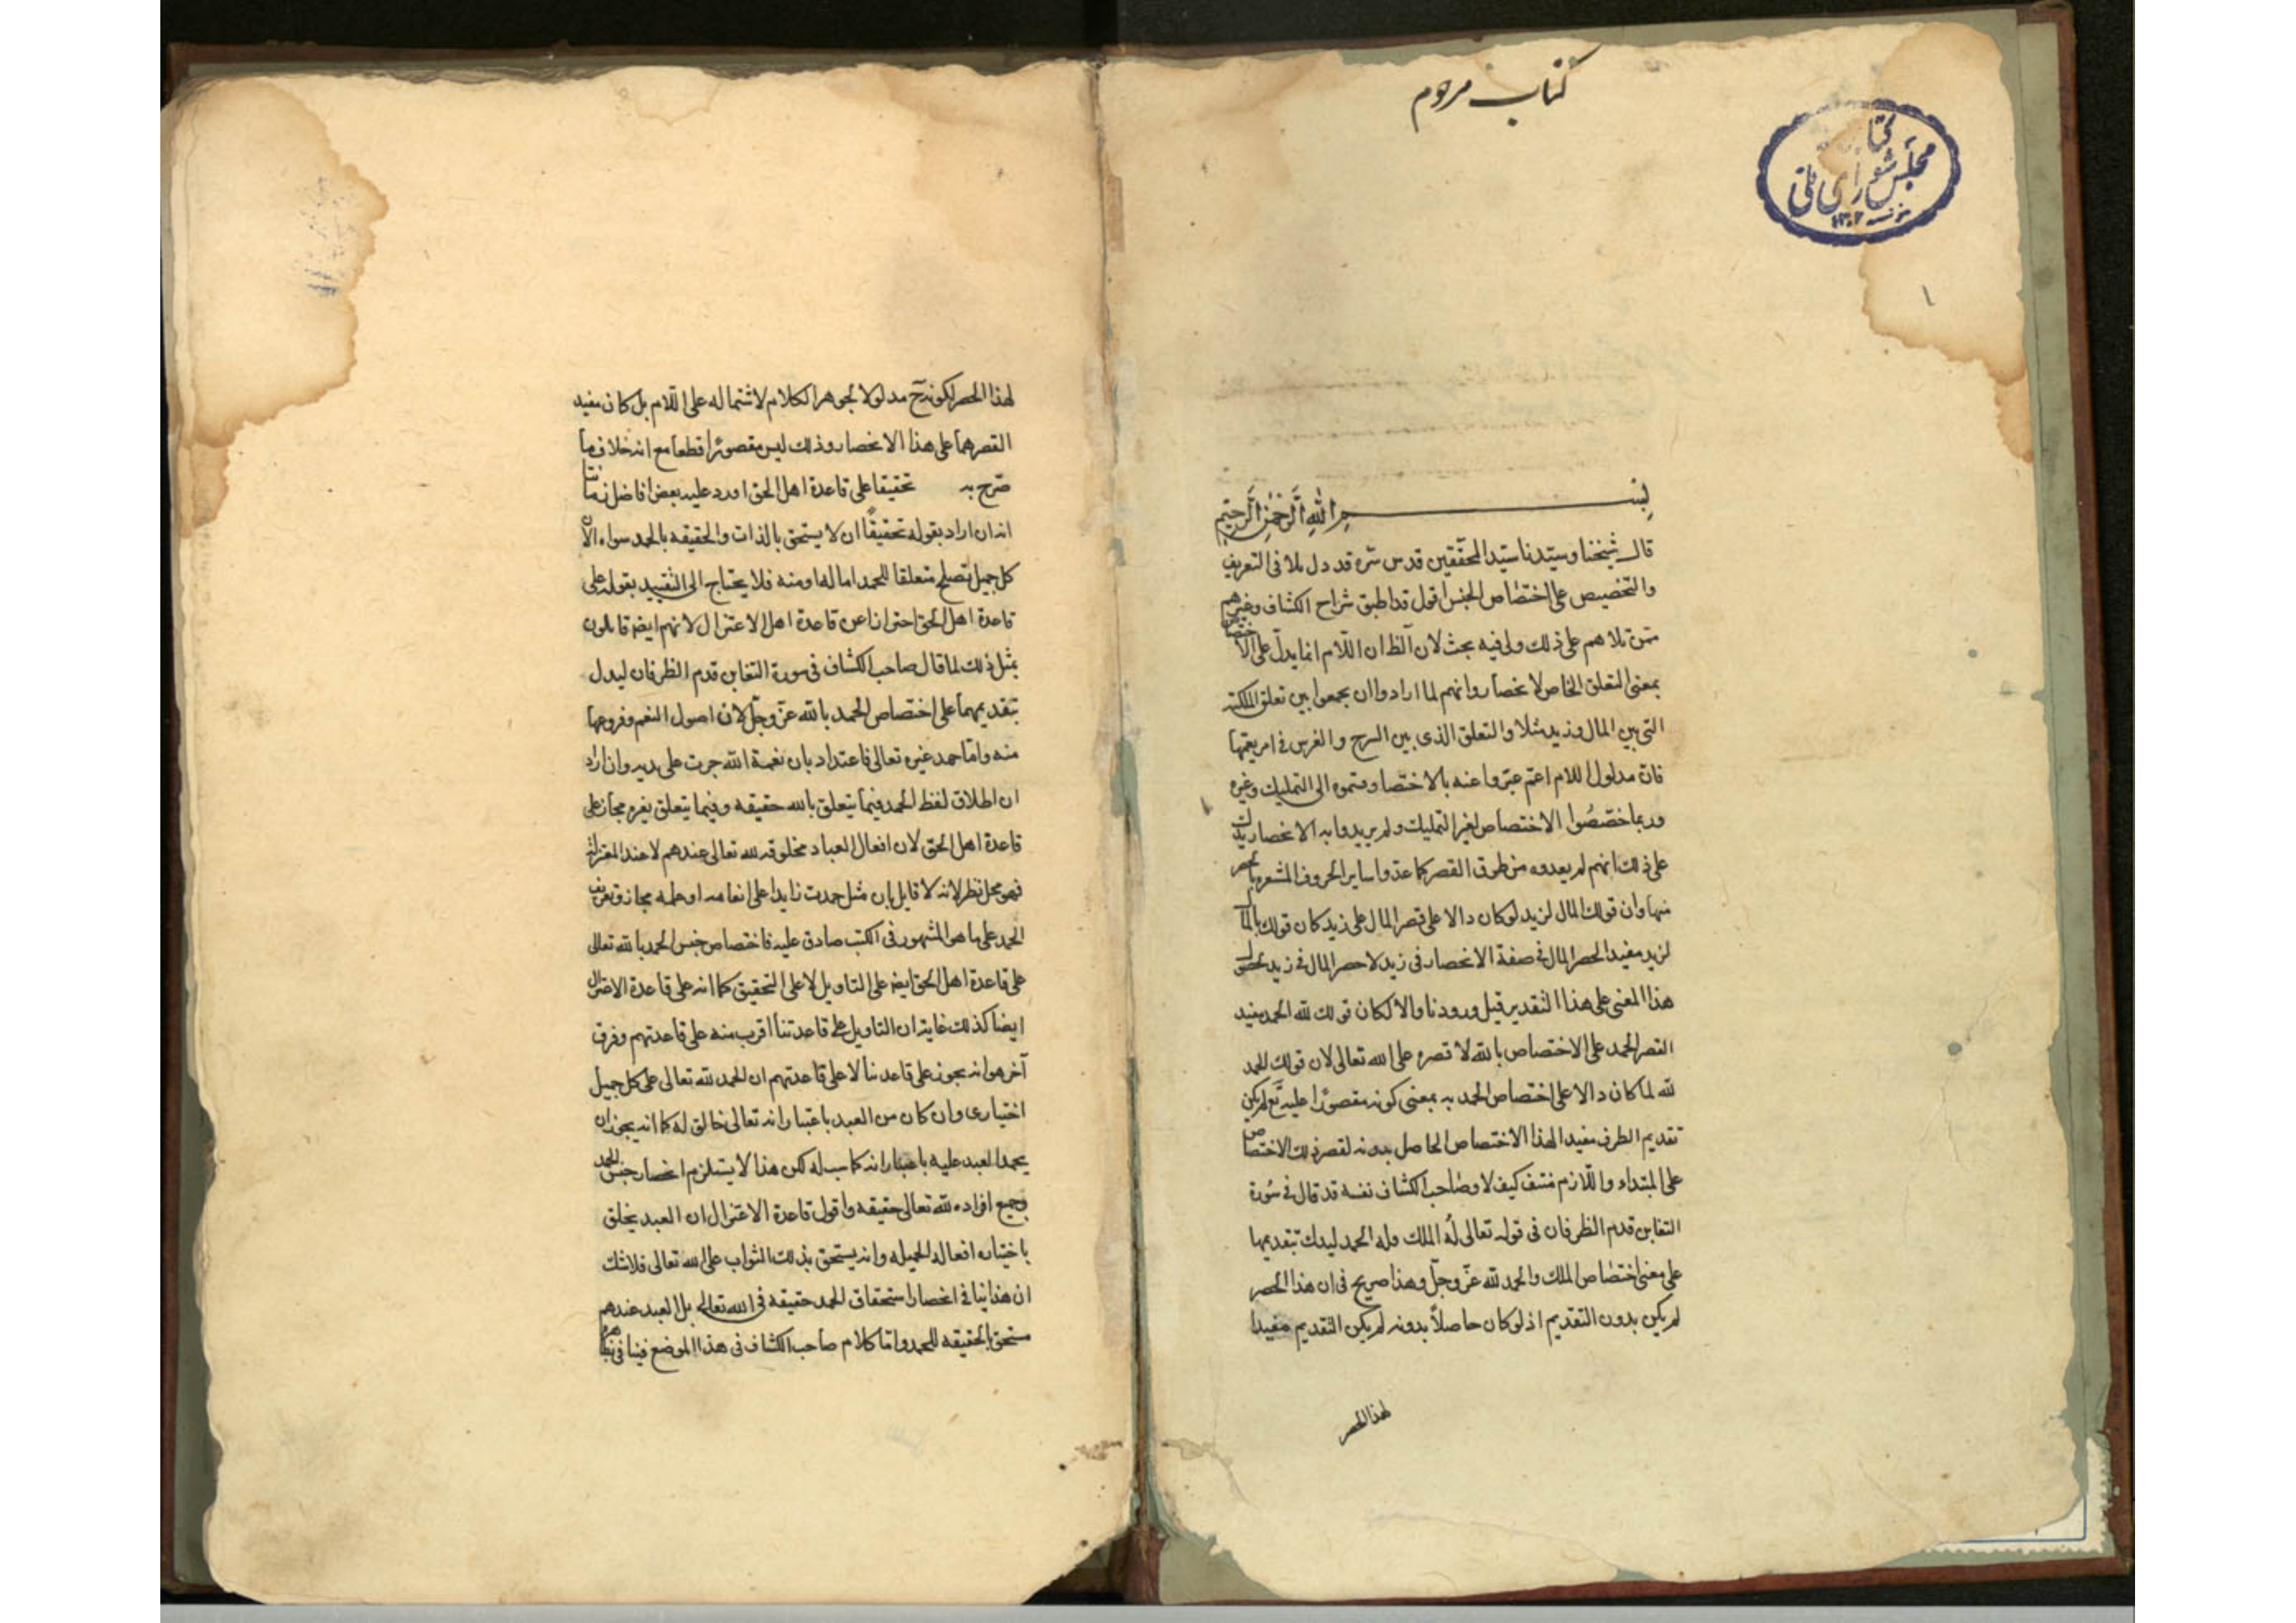 كتاب مرحوم
كتا
مجلس شورای ملی
١٣٠٢
١
بسم الله الرحمن الرحيم
قال شيخنا وسيدنا سيد المحققين قدس سره قد دل بلا فى التعريف
والتخصيص على اختصاص الجنس اقول قد اطبق شراح الكشاف وغيرهم
ممن تلاهم على ذلك ولى فيه بحث لان الظ ان اللام انما يدل على الاختصاص
بمعنى التعلق الخاص لا نحصار وانهم لما ارادوا ان يجمعوا بين تعلق الملكية
التى بين المال وزيد مثلا والتعلق الذى بين السرج والفرس فى امر يعمها
فان مدلول اللام اعم عبروا عنه بالاختصا وقسموه الى التمليك وغيره
وربما خصصوا الاختصاص لغير التمليك ولم يريدوا به الانحصار يدلك
على ذلك انهم لم يعدوه من طرق القصر كما عدوا ساير الحروف المشعره بالحصر
منها وان قولك المال لزيد لو كان دالا على قصر المال على زيد كان قولك المال
لزيد مفيدا لحصر المال فى صفة الانحصار فى زيد لا حصر المال فى زيد
هذا المعنى على هذا التقدير قبل ورودنا والا لكان قولك لله الحمد مفيد
القصر الحمد على الاختصاص بالله لا قصره على الله تعالى لان قولك الحمد
لله لما كان دالا على اختصاص الحمد به بمعنى كونه مقصورا عليه تع لم يكن
تقديم الظرف مفيدا لهذا الاختصاص الحاصل بدونه لقصر ذلك الاختصاص
على المبتداء واللازم منتف كيف لا وصاحب الكشاف نفسه قد قال فى سورة
التغابن قدم الظرفان فى قوله تعالى له الملك وله الحمد ليدل بتقديمها
على معنى اختصاص الملك والحمد لله عز وجل وهذا صريح فى ان هذا الحصر
لم يكن بدون التقديم اذ لو كان حاصلاً بدونه لم يكن التقديم مفيدا
لهذا الحصر
لهذا الحصر لكونه ح مدلولا لجوهر الكلام لاشتماله على اللام بل كان مفيد
القصرهما على هذا الانحصار وذلك ليس مقصورا قطعا مع انه خلاف ما
صرح به تحقيقا على قاعدة اهل الحق اورد عليه بعض افاضل زماننا
انه ان اراد بقوله تحقيقاً ان لا يستحق بالذات والحقيقه بالحمد سواه لان
كل جميل تصلح متعلقا للحمد اما له او منه فلا يحتاج الى التقييد بقوله على
قاعدة اهل الحق احترازا عن قاعدة اهل الاعتزال لانهم ايضه قائلون
بمثل ذلك لما قال صاحب الكشاف فى سورة التغابن قدم الظرفان ليدل
بتقديمهما على اختصاص الحمد بالله عز وجل لان اصول النعم وفروعها
منه واما حمد غيره تعالى فاعتداد بان نعمة الله جرت على يديه وان اراد
ان اطلاق لفظ الحمد فيما يتعلق بالله حقيقه وفيما يتعلق بغيره مجاز على
قاعدة اهل الحق لان افعال العباد مخلوقه لله تعالى عندهم لا عند المعتزلة
فهو محل نظر لانه لا قايل بان مثل حمدت زايدا على انعامه او علمه مجاز وتعريف
الحمد على ما هو المشهور فى الكتب صادق عليه فاختصاص جنس الحمد بالله تعالى
على قاعدة اهل الحق ايضه على التاويل لا على التحقيق كما انه على قاعدة الاعتزال
ايضا كذلك غايته ان التاويل على قاعدتنا اقرب منه على قاعدتهم وفرق
آخر هو انه يجوز على قاعدتنا لا على قاعدتهم ان الحمد لله تعالى على كل جميل
اختيارى وان كان من العبد باعتبار انه تعالى خالق له كما انه يجوز ان
يحمد العبد عليه باعتبار انه كاسب له لكن هذا لا يستلزم انحصار جنس الحمد
وجميع افراده لله تعالى حقيقه واقول قاعدة الاعتزال ان العبد يخلق
باختياره افعاله الجميله وانه يستحق بذلك الثواب على الله تعالى فلا شك
ان هذا ينافى انحصار استحقاق الحمد حقيقه فى الله تعالى بل العبد عندهم
مستحق بالحقيقه للحمد واما كلام صاحب الكشاف فى هذا الموضع فينافى